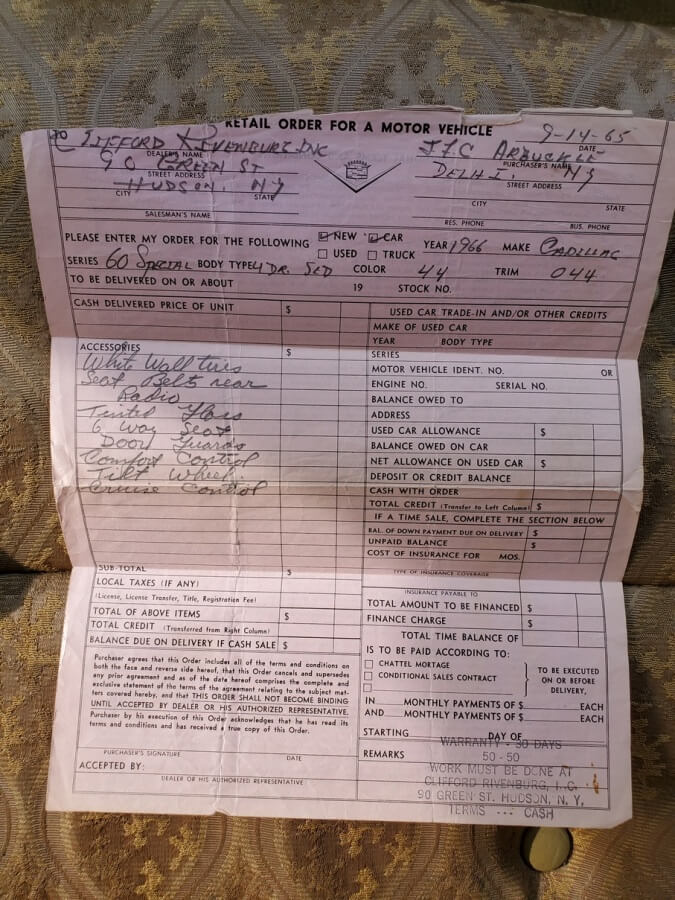 RETAIL ORDER FOR A MOTOR VEHICLE
9-14-65
DATE
TO CLIFFORD RIVENBURG INC
DEALER'S NAME
90 GREEN ST
STREET ADDRESS
HUDSON, NY
CITY STATE
SALESMAN'S NAME
J.F.C ARBUCKLE
PURCHASER'S NAME
DELHI, NY
STREET ADDRESS
CITY STATE
RES. PHONE BUS. PHONE
PLEASE ENTER MY ORDER FOR THE FOLLOWING NEW CAR YEAR 1966 MAKE CADILLAC
USED TRUCK
SERIES 60 SPECIAL BODY TYPE 4 DR. SED COLOR 44 TRIM 044
TO BE DELIVERED ON OR ABOUT 19 STOCK NO.
CASH DELIVERED PRICE OF UNIT $
ACCESSORIES $
White Wall tires
Seat Belts rear
Radio
Tinted Glass
6 Way Seat
Door Guards
Comfort Control
Tilt Wheel.
Cruise Control
SUB-TOTAL $
LOCAL TAXES (IF ANY)
(License, License Transfer, Title, Registration Fee)
TOTAL OF ABOVE ITEMS $
TOTAL CREDIT (Transferred from Right Column)
BALANCE DUE ON DELIVERY IF CASH SALE $
Purchaser agrees that this Order includes all of the terms and conditions on
both the face and reverse side hereof, that this Order cancels and supersedes
any prior agreement and as of the date hereof comprises the complete and
exclusive statement of the terms of the agreement relating to the subject mat-
ters covered hereby, and that THIS ORDER SHALL NOT BECOME BINDING
UNTIL ACCEPTED BY DEALER OR HIS AUTHORIZED REPRESENTATIVE.
Purchaser by his execution of this Order acknowledges that he has read its
terms and conditions and has received a true copy of this Order.
PURCHASER'S SIGNATURE DATE
ACCEPTED BY:
DEALER OR HIS AUTHORIZED REPRESENTATIVE
USED CAR TRADE-IN AND/OR OTHER CREDITS
MAKE OF USED CAR
YEAR BODY TYPE
SERIES
MOTOR VEHICLE IDENT. NO. OR
ENGINE NO. SERIAL NO.
BALANCE OWED TO
ADDRESS
USED CAR ALLOWANCE $
BALANCE OWED ON CAR
NET ALLOWANCE ON USED CAR $
DEPOSIT OR CREDIT BALANCE
CASH WITH ORDER
TOTAL CREDIT (Transfer to Left Column) $
IF A TIME SALE, COMPLETE THE SECTION BELOW
BAL. OF DOWN PAYMENT DUE ON DELIVERY $
UNPAID BALANCE $
COST OF INSURANCE FOR MOS.
TYPE OF INSURANCE COVERAGE
INSURANCE PAYABLE TO
TOTAL AMOUNT TO BE FINANCED $
FINANCE CHARGE $
TOTAL TIME BALANCE OF
IS TO BE PAID ACCORDING TO:
CHATTEL MORTAGE
CONDITIONAL SALES CONTRACT
TO BE EXECUTED
ON OR BEFORE
DELIVERY,
IN MONTHLY PAYMENTS OF $ EACH
AND MONTHLY PAYMENTS OF $ EACH
STARTING DAY OF
WARRANTY - 30 DAYS
REMARKS 50 - 50
WORK MUST BE DONE AT
CLIFFORD RIVENBURG, I.C.
90 GREEN ST. HUDSON, N. Y.
TERMS --- CASH